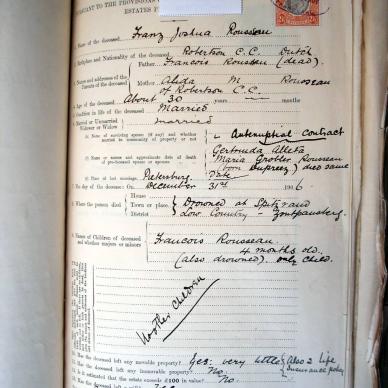 PURSUANT TO THE PROVISIONS
ESTATES
Name of the deceased Franz Joshua Rousseau
Birthplace and Nationality of the deceased Robertson C.C. Dutch
Names and addresses of the Parents of the deceased
Father Francois Rousseau (dead)
Mother Alida M Rousseau
of Robertson C.C.
Age of the deceased About 30 years months
Condition in life of the deceased Married
Married or Unmarried Widower or Widow married
(a) Name of surviving spouse (if any) and whether married in community of property or not
Antenuptial contract
Gertruida Alleta
Maria Grobler Rousseau
(b) Name or names and approximate date of death of pre-deceased spouse or spouses
(born Dupreez) died same
date
(c) Place of last marriage Pietersburg
The day of the decease On December 31st 1906
Where the person died
House
Town or place Drowned at Spitzrand
District Low Country - Zoutpansberg
Names of Children of deceased and whether majors or minors
Francois Rousseau
4 months old.
(also drowned). only child.
No other children
Has the deceased left any movable property? Yes: very little Also 2 Life
Has the deceased left any immovable property? No. Insurance policy
Is it estimated that the estate exceeds £100 in value? No.